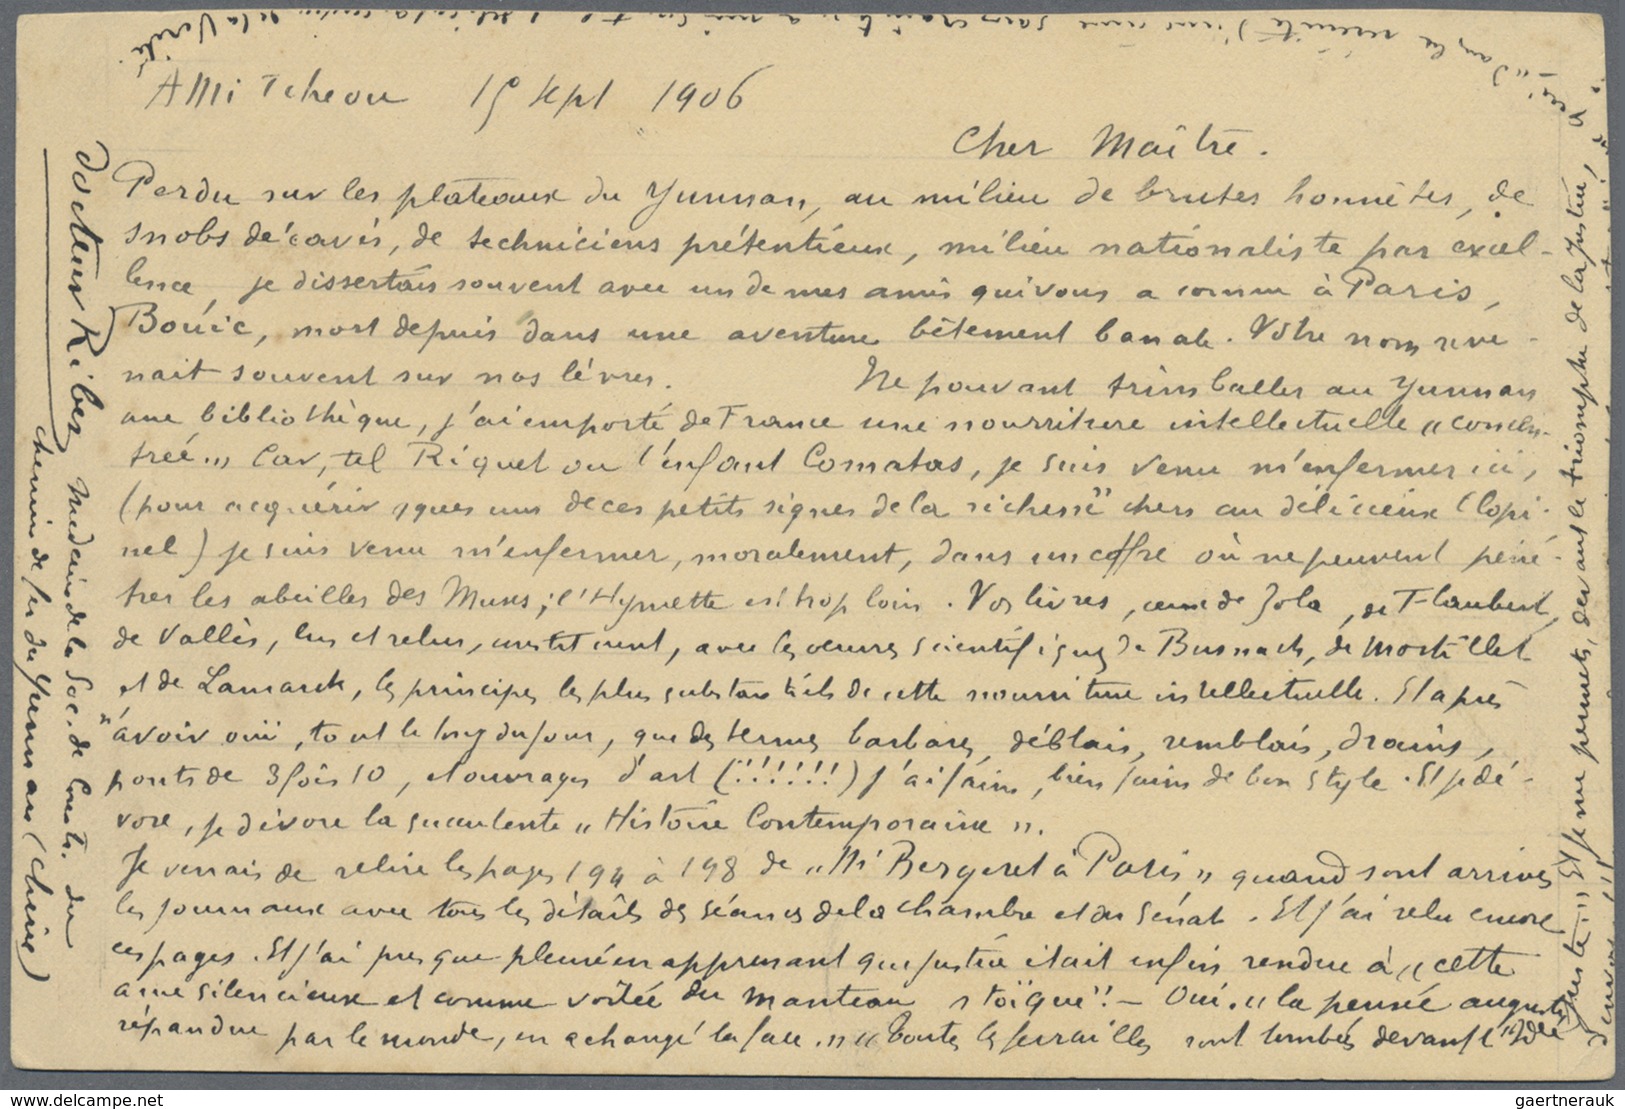 AMi Tcheou 15 Sept 1906
Cher Maître.
Perdu sur les plateaux du Yunnan, au milieu de brutes honnêtes, de
snobs décavés, de techniciens prétentieux, milieu nationaliste par excel-
lence, je dissertais souvent avec un de mes amis qui vous a connu à Paris,
Bouïc, mort depuis dans une aventure bêtement banale. Votre nom reve-
nait souvent sur nos lèvres. Ne pouvant trimballer au Yunnan
une bibliothèque, j'ai emporté de France une nourriture intellectuelle "concen-
trée". Car, tel Riquet ou l'enfant Comatas, je suis venu m'enfermer ici,
(pour acquérir qques uns de ces petits signes de la richesse" chers au délicieux Clopi-
nel) je suis venu m'enfermer, moralement, dans un coffre où ne peuvent péné-
trer les abeilles des Muses; l'Hymette est trop loin. Vos livres, ceux de Zola, de Flaubert,
de Vallès, lus et relus, constituent, avec les oeuvres scientifiques de de Mortillet
et de Lamarck, les principes les plus substantiels de cette nourriture intellectuelle. Et après
avoir ouï, tout le long du jour, que des termes barbares, déblais, remblais, drains,
ponts de 3 fois 10, et ouvrages d'art (!!!!!!!) j'ai faim, bien faim de bon style. Et je dé-
vore, je dévore la succulente "Histoire Contemporaine".
Je venais de relire les pages 194 à 198 de "Mr Bergeret à Paris" quand sont arrivés
les journaux avec tous les détails des séances de la chambre et du Sénat. Et j'ai relu encore
ces pages. Et j'ai presque pleuré en apprenant que justice était enfin rendue à "cette
âme silencieuse et comme voilée du manteau stoïque"! - Oui. "la pensée auguste
répandue par le monde, en a changé la face." "Toutes les ferrailles sont tombées devant l'Idée
juste." Et je me permets, devant le triomphe de la Justice,
dans la sérénité d'une âme sans crainte
de la Vérité
Docteur Ribes
Médecin de la Soc. de Constr. du
chemin de fer du Yunnan (Chine)
www.delcampe.net
gaertnerauk